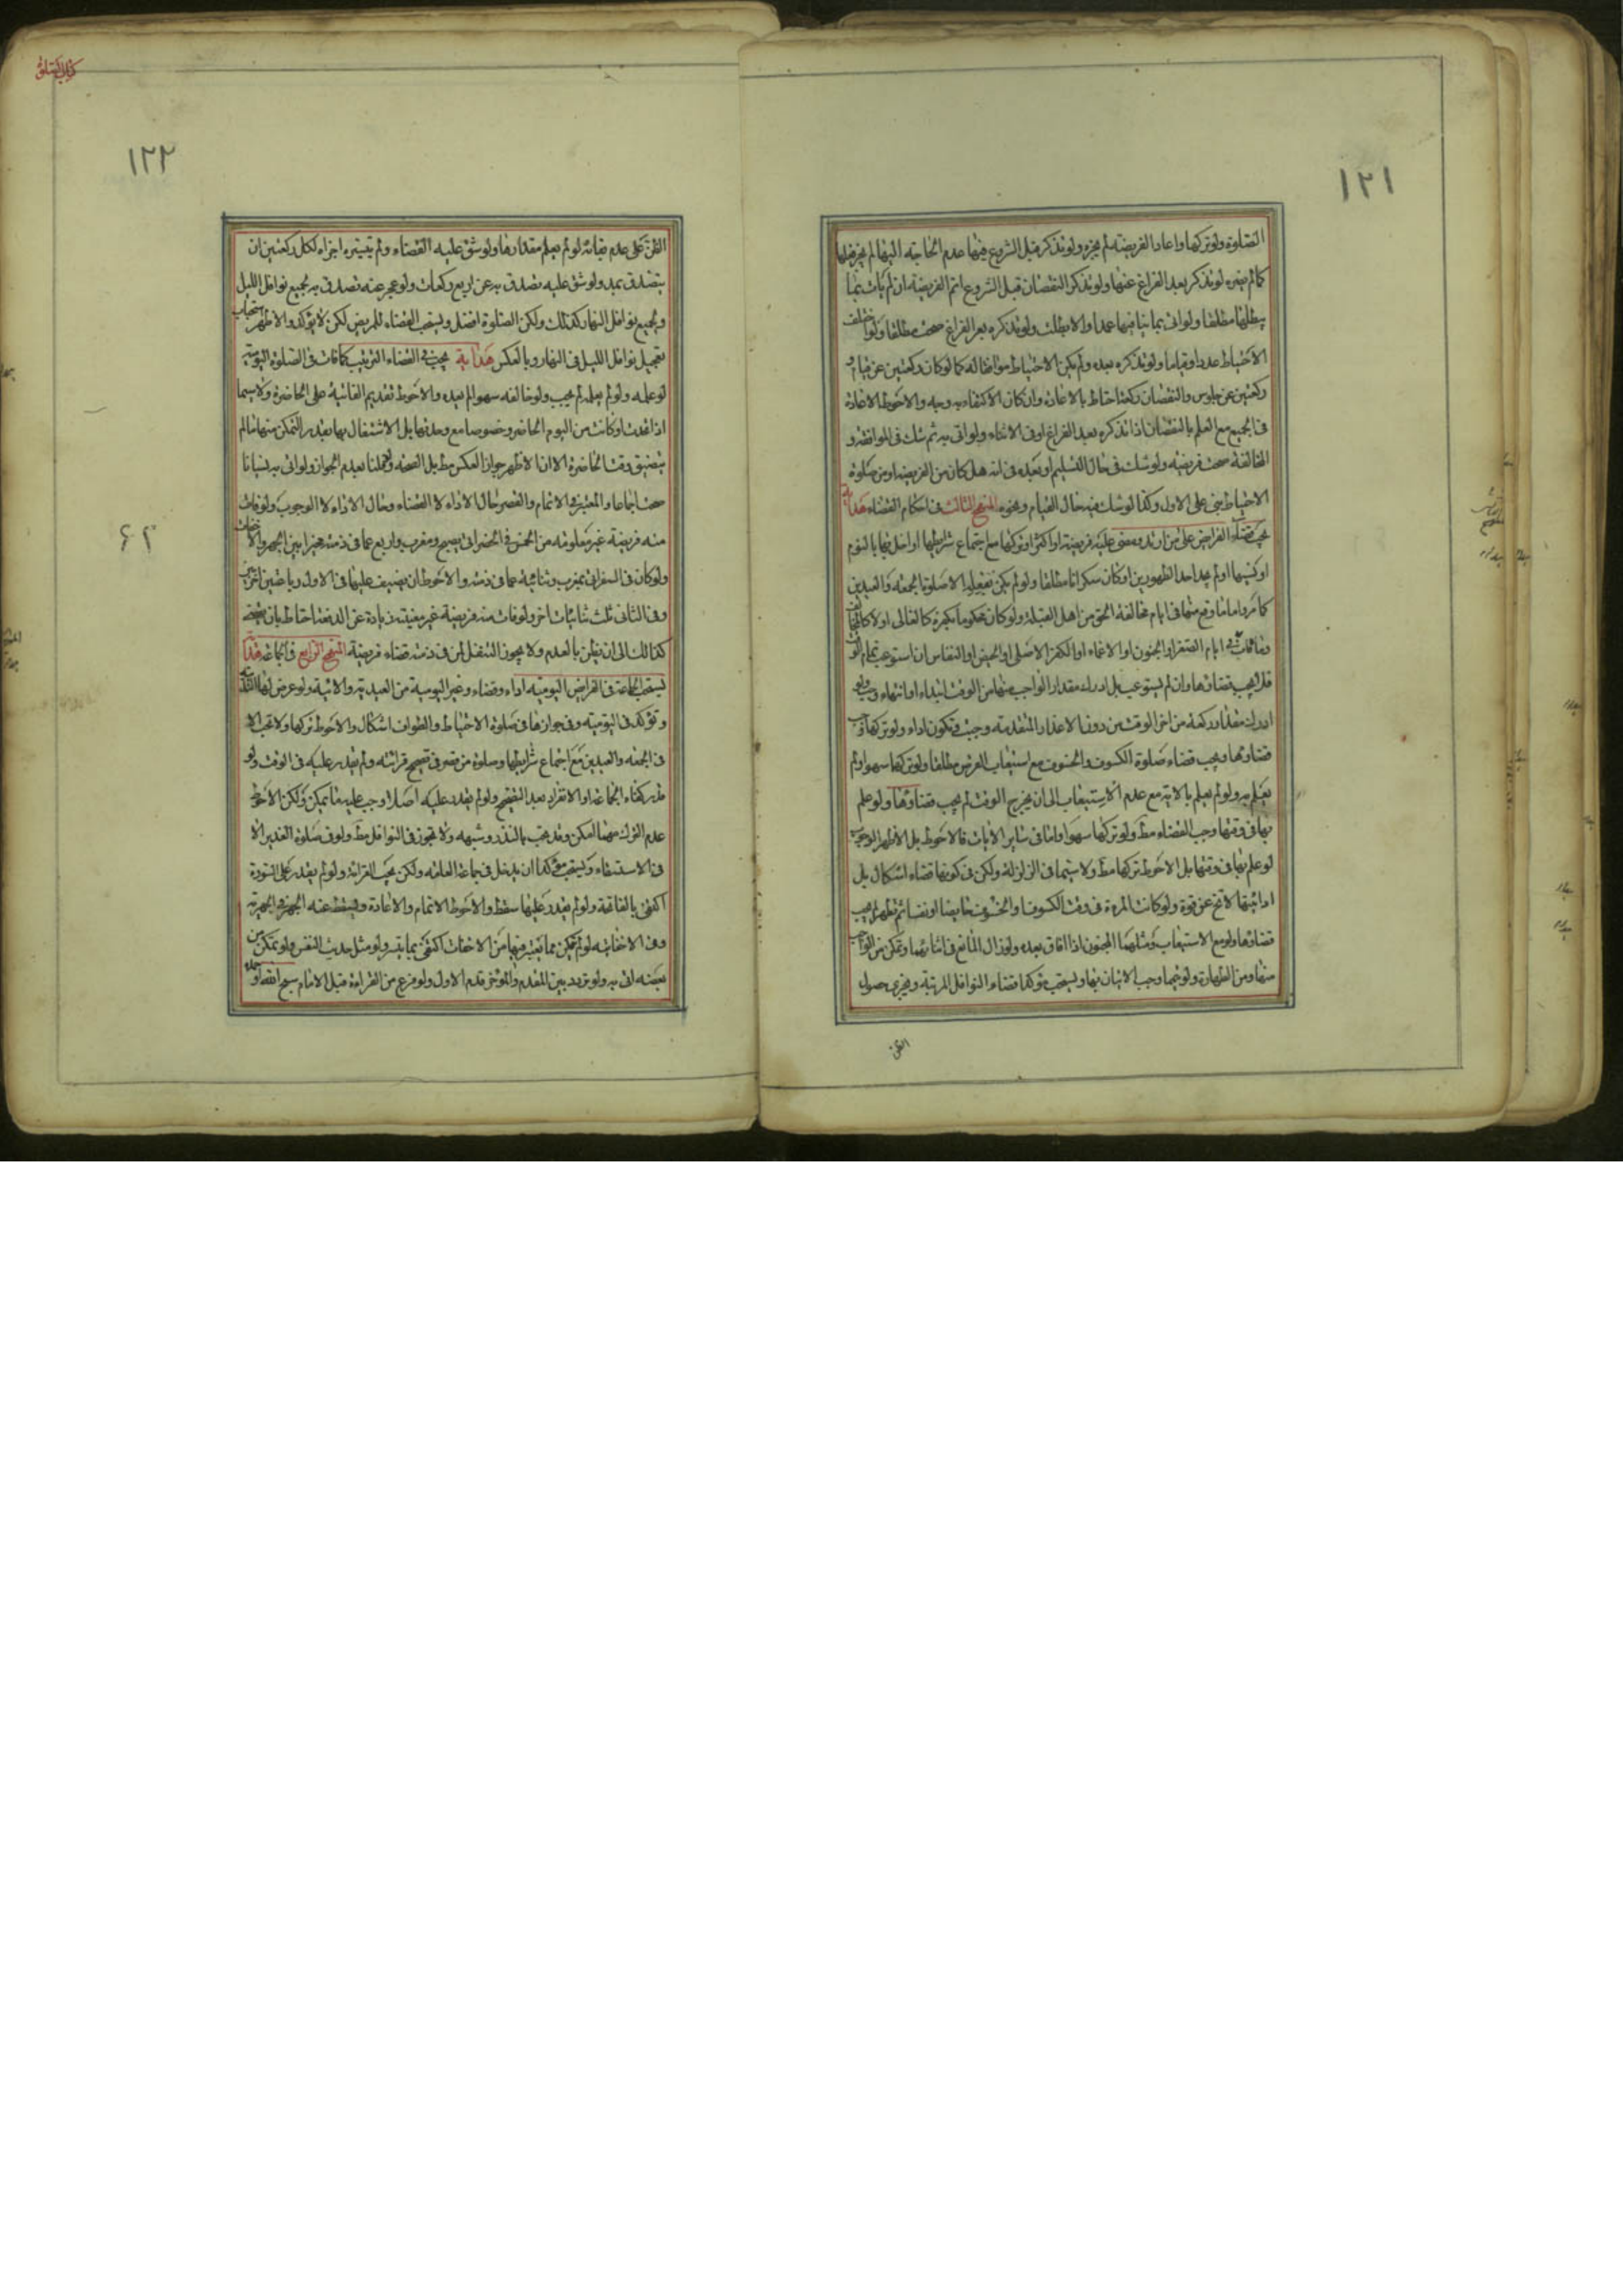 ١٢١
الصلوة ولو تركها واعاد الفريضة لم يجزه ولو تذكر قبل الشروع فيها عدم الحاجة اليها لم يجز فعلها
كما لم يضره لو تذكر بعد الفراغ عنها ولو تذكر النقصان قبل الشروع اتم الفريضة ان لم يات بما
يبطلها مطلقا ولو اتى بما ينافيها عمدا والا بطلت ولو تذكره بعد الفراغ صحت مطلقا ولو اختلف
الاحتياط عددا وقياما ولو تذكره بعده ولم يكن الاحتياط موافقا له كما لو كان ركعتين عن قيام و
ركعتين عن جلوس والنقصان ركعة احتاط بالاعادة وان كان الاكتفاء به وجه والاحوط الاعادة
فى الجميع مع العلم بالنقصان اذا تذكره بعد الفراغ او فى الاثناء ولو اتى به ثم شك فى الموافقة و
المخالفة صحت فريضته ولو شك فى حال التسليم او بعده فى انه هل كان من الفريضة او من صلوة
الاحتياط بنى على الاول وكذا لو شك فيه حال القيام ونحوه المنهج الثالث فى احكام القضاء هداية
يجب قضاء الفرايض على من ارتد ومضى عليه فريضة او اكثر او تركها مع اجتماع شرايطها او اخل بها بالنوم
او نسيها او لم يجد احد الطهورين او كان سكرانا مطلقا ولو لم يكن بفعله الا صلوة الجمعة والعيدين
كما مر واما ما وقع منها فى ايام مخالفة الحق من اهل القبلة ولو كان محكوما بكفره كالغالى او لا كالمخالف
وما فات فى ايام الصغر او الجنون او الاغماء او الكفر الاصلى او الحيض او النفاس ان استوعب تمام الوقت
فلا يجب قضاؤها وان لم يستوعب بل ادرك مقدار الواجب منها من الوقت ابتداء او انتهاء وجب ولو
ادرك مقدار ركعة من اخر الوقت من دون الاعذار المتقدمة وجبت وتكون اداء ولو تركها وجب
قضاؤها ويجب قضاء صلوة الكسوف والخسوف مع استيعاب القرص مطلقا ولو تركها سهوا ولم
يعلم به ولو لم يعلم بالاية مع عدم الاستيعاب الى ان يخرج الوقت لم يجب قضاؤها ولو علم
بها فى وقتها وجب القضاء مط ولو تركها سهوا واما فى ساير الايات فالاحوط بل الاظهر الوجوب
لو علم بها فى وقتها بل الاحوط تركها مط ولا سيما فى الزلزلة ولكن فى كونها قضاء اشكال بل
ادائيتها لا تخ عن قوة ولو كانت المرءة فى وقت الكسوف او الخسوف حايضا او نفساء ثم طهرت لم يجب
قضاؤها ولو مع الاستيعاب ومثلهما المجنون اذا افاق بعده ولو زال المانع فى اثنائهما وتمكن من الواجب
منها ومن الطهارة ولو تيمما وجب الاتيان بها ويستحب مؤكدا قضاء النوافل المرتبة ويجزى حصول
الظن
كتاب الصلوة
١٢٢
الظن على عدم بقائه لو لم يعلم مقدارها ولو شق عليه القضاء ولم يتيسر اجزاه لكل ركعتين ان
يتصدق بمد ولو شق عليه تصدق به عن اربع ركعات ولو عجز عنه تصدق به لجميع نوافل الليل
ولجميع نوافل النهار كذلك ولكن الصلوة افضل ويستحب القضاء للمريض لكن لا يتؤكد والاظهر استحباب
تعجيل نوافل الليل فى النهار وبالعكس هداية يجب فى القضاء الترتيب كما فات فى الصلوة اليومية
لو علمه ولو لم يعلمه لم يجب ولو خالفه سهوا لم يعده والاحوط تقديم الفائتة على الحاضرة ولا سيما
اذا اتحدت او كانت من اليوم الحاضر وخصوصا مع وحدتها بل الاشتغال بها بقدر التمكن منها ما لم
يتضيق وقت الحاضرة الا ان الاظهر جواز العكس مط بل الصحة وان قلنا بعدم الجواز ولو اتى به نسيانا
صحت اجماعا والمعتبر فى الاتمام والقصر حال الاداء لا القضاء وحال الاداء لا الوجوب ولو فات
منه فريضة غير معلومة من الخمس فى الحضر اتى بصبح ومغرب واربع عما فى ذمته مخيرا بين الجهر والاخفات
ولو كان فى السفر اتى بمغرب وثنائية عما فى ذمته والاحوط ان يضيف عليها فى الاول رباعيتين اخريين
وفى الثانى ثلث ثنائيات اخر ولو فات منه فريضة غير معينة زيادة عن الدفعة احتاط بان يقضى
كذلك الى ان يظن بالعدم ولا يجوز التنفل لمن فى ذمته قضاء فريضة المنهج الرابع فى الجماعة هداية
يستحب الجماعة فى الفرايض اليومية اداء وقضاء وغير اليومية من العيدية والايتية ولو عرض لها النذر
وتؤكد فى اليومية وفى جوازها فى صلوة الاحتياط والطواف اشكال والاحوط تركها ولا تجب الا
فى الجمعة والعيدين مع اجتماع شرايطها وصلوة من قصر فى تصحيح قرائته ولم يقدر عليه فى الوقت ولو
قدر كفاه الجماعة او الانفراد بعد التصحيح ولو لم يقدر عليه اصلا وجب عليه ما يمكن ولكن الاحوط
عدم الترك مهما امكن وقد يجب بالنذر وشبهه ولا تجوز فى النوافل مط ولو فى صلوة الغدير الا
فى الاستسقاء ويستحب مؤكدا ان يدخل فى جماعة العامه ولكن يجب القرائة ولو لم يقدر على السورة
اكتفى بالفاتحة ولو لم يقدر عليها سقط والاحوط الاتمام والاعادة ويسقط عنه الجهر فى الجهرية
وفى الاخفاتيه لو لم يتمكن مما يعتبر فيها من الاخفات اكتفى بما يتيسر ولو مثل حديث النفس ولو تمكن من
بعضه اتى به ولو تردد بين المقدم والمؤخر قدم الاول ولو فرغ من القراءة قبل الامام سبح الله او
٦٢